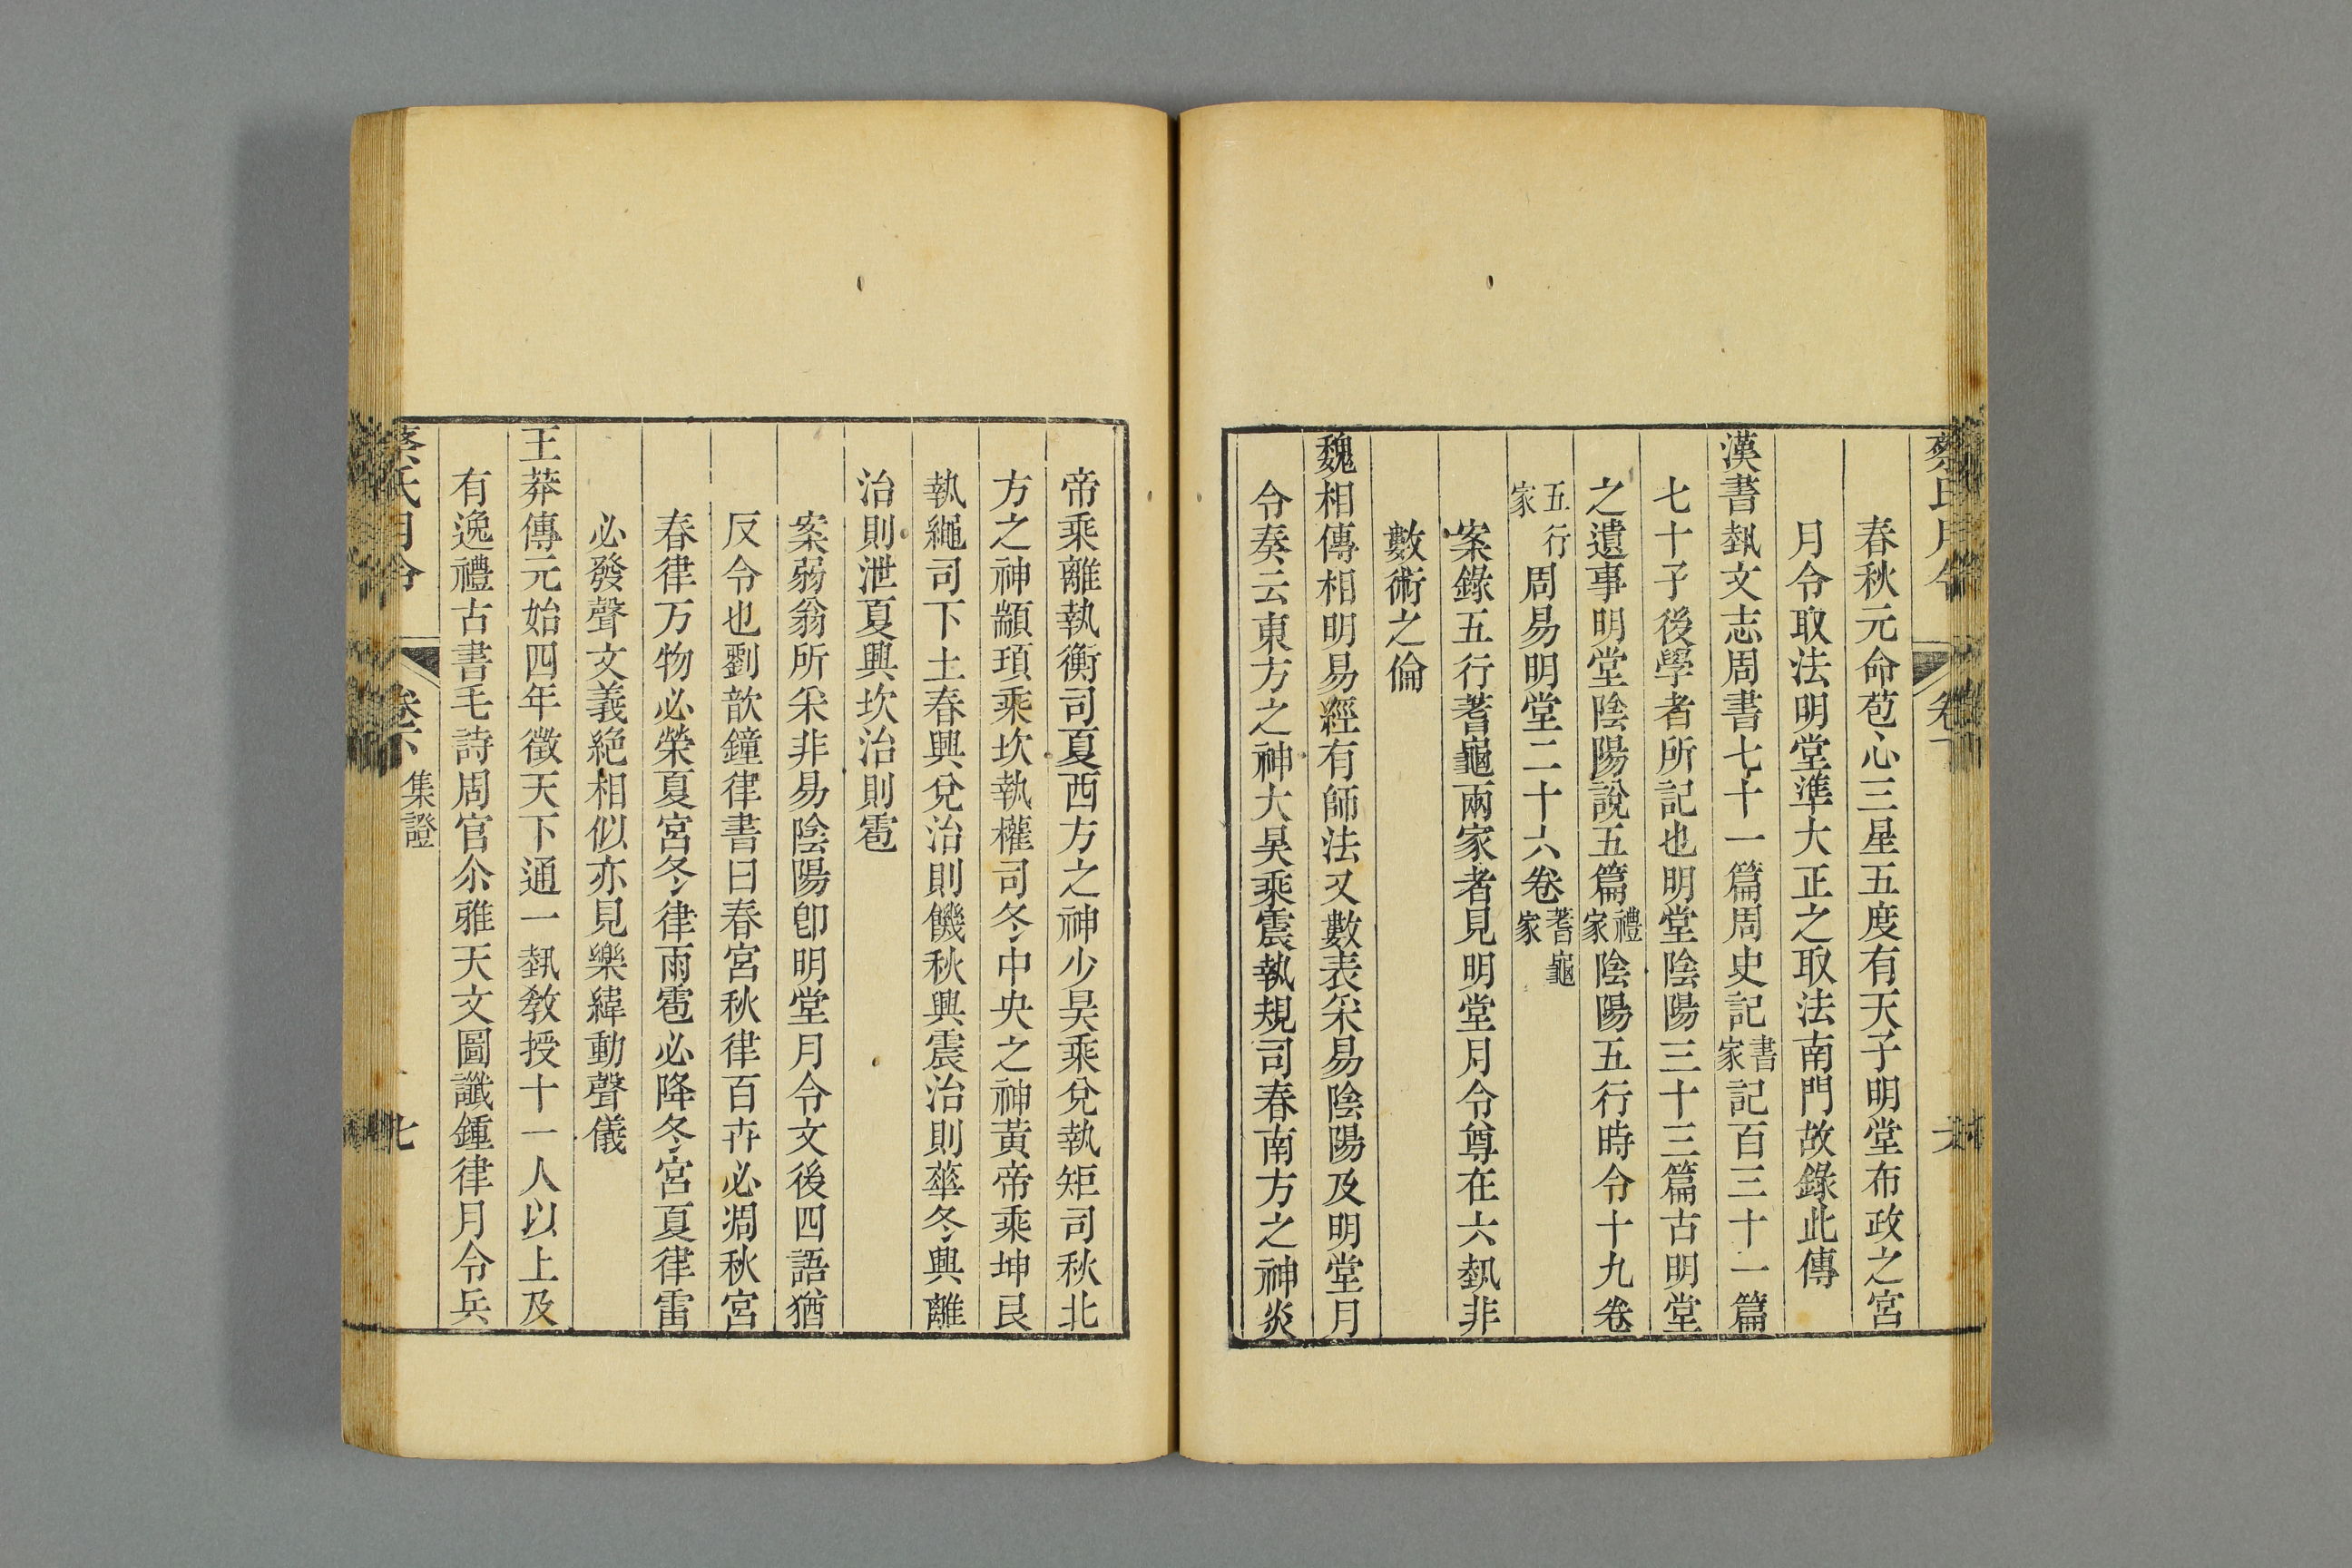 春秋元命苞心三星五度有天子明堂布政之宮
月令取法明堂準大正之取法南門故錄此傳
漢書埶文志周書七十一篇周史記書家記百三十一篇
七十子後學者所記也明堂陰陽三十三篇古明堂
之遺事明堂陰陽說五篇禮家陰陽五行時令十九卷
五行家周易明堂二十六卷蓍龜家
案錄五行蓍龜兩家者見明堂月令尊在六埶非
數術之倫
魏相傳相明易經有師法又數表采易陰陽及明堂月
令奏云東方之神大昊乘震執規司春南方之神炎
帝乘離執衡司夏西方之神少昊乘兌執矩司秋北
方之神顓頊乘坎執權司冬中央之神黃帝乘坤艮
執繩司下土春興兌治則饑秋興震治則華冬興離
治則泄夏興坎治則雹
案弱翁所采非易陰陽卽明堂月令文後四語猶
反令也劉歆鐘律書曰春宮秋律百卉必凋秋宮
春律万物必榮夏宮冬律雨雹必降冬宮夏律雷
必發聲文義絕相似亦見樂緯動聲儀
王莽傳元始四年徵天下通一埶教授十一人以上及
有逸禮古書毛詩周官尒雅天文圖讖鍾律月令兵
蔡氏月令
卷下
集證
七